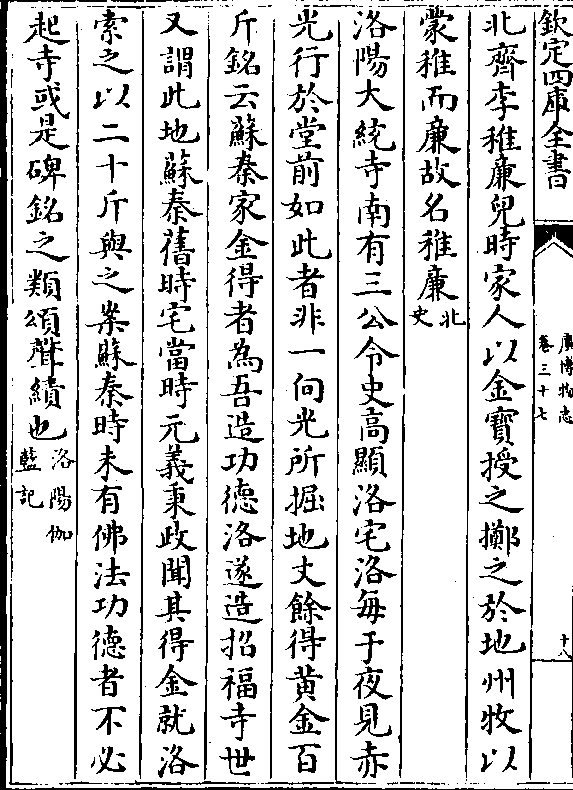 欽定四庫全書
廣博物志
卷三十七
十八
北齊李稚廉兒時家人以金寳授之擲之於地州牧以
蒙稚而廉故名稚廉北史
洛陽大統寺南有三公令史髙顯洛宅洛每于夜見赤
光行於堂前如此者非一向光所掘地丈餘得黄金百
斤銘云蘇秦家金得者為吾造功德洛遂造招福寺世
又謂此地蘇秦舊時宅當時元義秉政聞其得金就洛
索之以二十斤與之案蘇秦時未有佛法功德者不必
起寺或是碑銘之類頌聲績也洛陽伽藍記